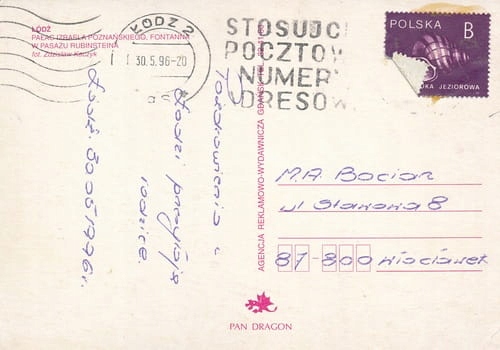 ŁÓDŹ
PAŁAC IZRAELA POZNAŃSKIEGO, FONTANNA
W PASAŻU RUBINSTEINA
fot. Zdzisław Kaczyk
ŁÓDŹ 2
30.5.96-20
STOSUJCI
POCZTOW
NUMER
DRESOW
POLSKA B
KA JEZIOROWA
Pozdrowienia z
Łodzi przesyłają
rodzice
Łódź 1996r.
AGENCJA REKLAMOWO-WYDAWNICZA GDAŃSK
M.A. Bocian
ul
8
87-800 Włocławek
PAN DRAGON